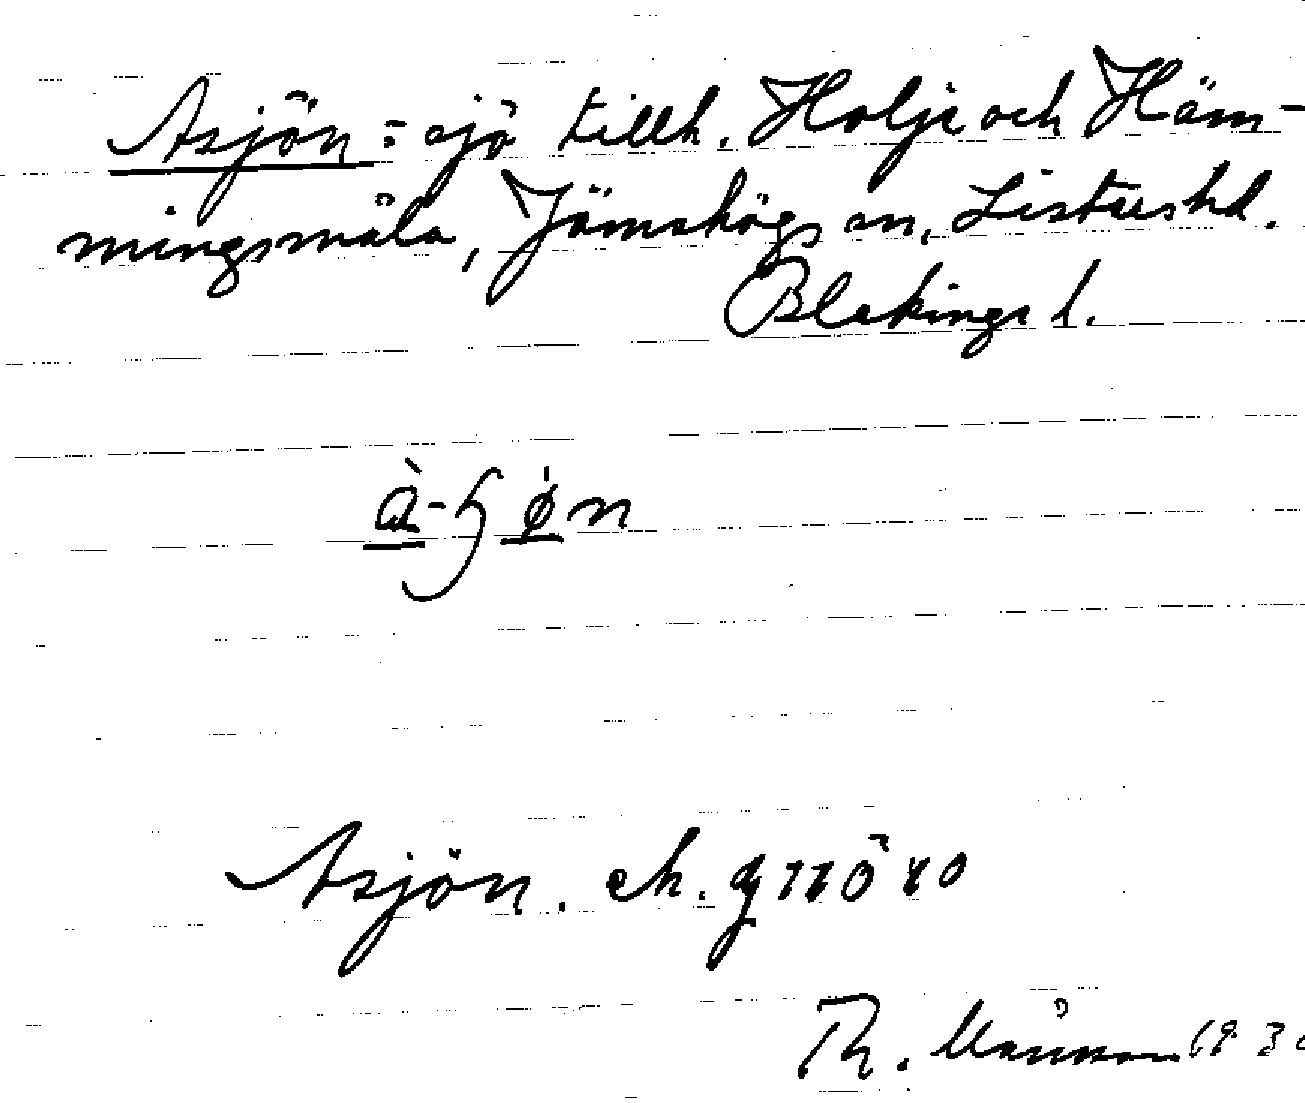 Asjön: sjö tillh. Holje och Häm-
mingsmåla, Jämshögs sn, Listers hd.
Blekinge l.
à-ɧøn
Asjön. ek.
Th. Månsson 193